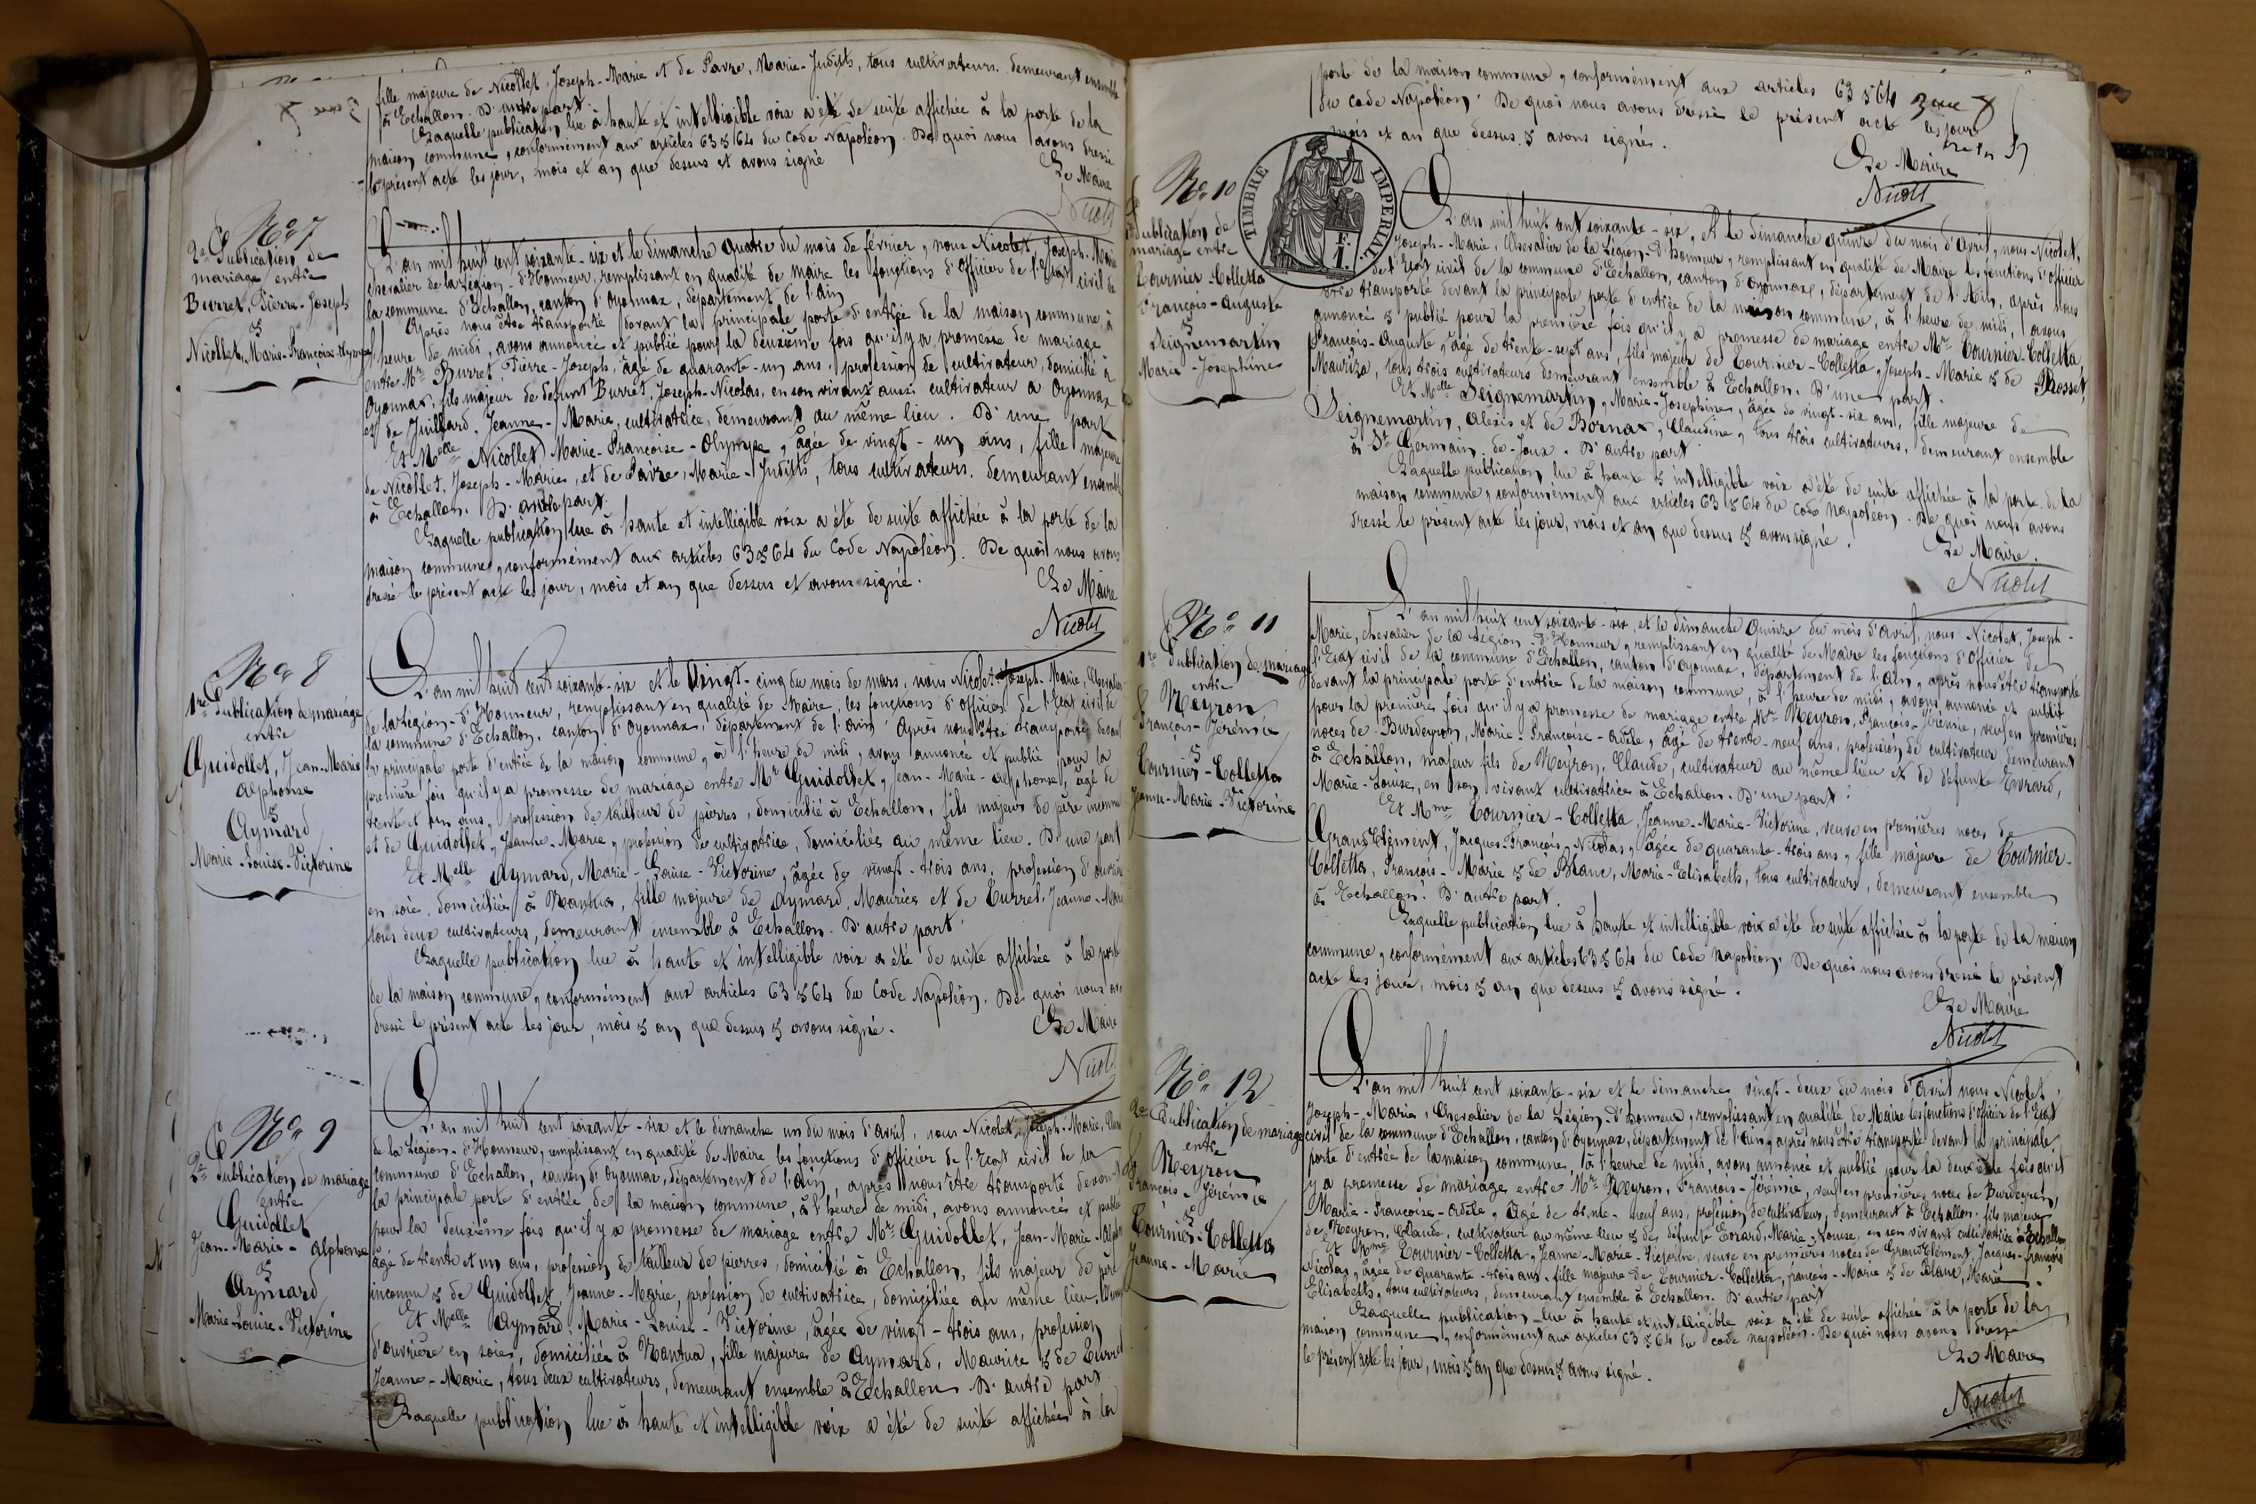 fille majeure de Nicollet, Joseph-Marie et de Favre, Marie-Judith, tous cultivateurs demeurant ensemble
à Echallon. D'autre part.
Laquelle publication lue à haute et intelligible voix a été de suite affichée à la porte de la
maison commune, conformément aux articles 63 & 64 du Code Napoléon. De quoi nous avons dressé
le présent acte les jour, mois et an que dessus et avons signé
Le Maire
Nicolet
No 7
2e Publication de
mariage entre
Burret, Pierre-Joseph
&
Nicollet, Marie-Françoise-Olympe
L'an mil huit cent soixante-six et le dimanche quatre du mois de février, nous Nicolet, Joseph-Marie
chevalier de la Légion-d'Honneur, remplissant en qualité de maire les fonctions d'Officier de l'Etat civil de
la commune d'Echallon, canton d'Oyonnax, département de l'Ain
Après nous être transporté devant la principale porte d'entrée de la maison commune, à
l'heure de midi, avons annoncé et publié pour la deuxième fois qu'il y a promesse de mariage
entre Mr Burret, Pierre-Joseph, âgé de quarante-un ans, profession de cultivateur, domicilié à
Oyonnax, fils majeur de défunt Burret, Joseph-Nicolas, en son vivant aussi cultivateur à Oyonnax
et de Juillard, Jeanne-Marie, cultivatrice, demeurant au même lieu. D'une part
Et Melle Nicollet Marie-Françoise-Olympe, âgée de vingt-un ans, fille majeure
de Nicollet, Joseph-Marie, et de Favre, Marie-Judith, tous cultivateurs demeurant ensemble
à Echallon. D'autre part.
Laquelle publication lue à haute et intelligible voix a été de suite affichée à la porte de la
maison commune, conformément aux articles 63 & 64 du Code Napoléon. De quoi nous avons
dressé le présent acte les jour, mois et an que dessus et avons signé.
Le Maire
Nicolet
No 8
1re Publication de mariage
entre
Guidollet, Jean-Marie
Alphonse
&
Aymard
Marie-Louise-Victorine
L'an mil huit cent soixante-six et le Vingt-cinq du mois de mars, nous Nicolet Joseph-Marie, Chevalier
de la Légion-d'Honneur, remplissant en qualité de Maire, les fonctions d'officier de l'Etat civil de
la commune d'Echallon, canton d'Oyonnax, département de l'Ain. Après nous être transporté devant
la principale porte d'entrée de la maison commune, à l'heure de midi, avons annoncé et publié pour la
première fois qu'il y a promesse de mariage entre Mr Guidollet, Jean-Marie-Alphonse, âgé de
trente et un ans, profession de tailleur de pierres, domicilié à Echallon, fils majeur de père inconnu
et de Guidollet, Jeanne-Marie, profession de cultivatrice, domiciliés au même lieu. D'une part
Et Melle Aymard, Marie-Louise-Victorine, âgée de vingt-trois ans, profession d'ouvrière
en soie, domiciliée à Nantua, fille majeure de Aymard, Maurice et de Turrel, Jeanne-Marie
tous deux cultivateurs, demeurant ensemble à Echallon. D'autre part.
Laquelle publication lue à haute et intelligible voix a été de suite affichée à la porte
de la maison commune, conformément aux articles 63 & 64 du Code Napoléon. De quoi nous avons
dressé le présent acte les jour, mois & an que dessus & avons signé.
Le Maire
Nicolet
No 9
2e Publication de mariage
entre
Guidollet
Jean-Marie-Alphonse
&
Aymard
Marie-Louise-Victorine
L'an mil huit cent soixante-six et le dimanche un du mois d'avril, nous Nicolet, Joseph-Marie, Chevalier
de la Légion-d'Honneur, remplissant en qualité de Maire les fonctions d'Officier de l'Etat civil de la
commune d'Echallon, canton d'Oyonnax, département de l'Ain, après nous être transporté devant
la principale porte d'entrée de la maison commune, à l'heure de midi, avons annoncé et publié
pour la deuxième fois qu'il y a promesse de mariage entre Mr Guidollet, Jean-Marie-Alphonse
âgé de trente et un ans, profession de tailleur de pierres, domicilié à Echallon, fils majeur de père
inconnu & de Guidollet Jeanne-Marie, profession de cultivatrice, domiciliée au même lieu. D'une part
Et Melle Aymard, Marie-Louise-Victorine, âgée de vingt-trois ans, profession
d'ouvrière en soie, domiciliée à Nantua, fille majeure de Aymard, Maurice & de Turrel
Jeanne-Marie, tous deux cultivateurs, demeurant ensemble à Echallon D'autre part
Laquelle publication lue à haute et intelligible voix a été de suite affichée à la
porte de la maison commune, conformément aux articles 63 & 64
du code Napoléon. De quoi nous avons dressé le présent acte les jour
mois et an que dessus & avons signés.
Le Maire
Nicolet
No 10
Publication de
mariage entre
Tournier-Colletta
François-Auguste
&
Seignemartin
Marie-Josephine
TIMBRE IMPERIAL
L'an mil huit cent soixante-six, Et le dimanche quinze du mois d'avril, nous Nicolet,
Joseph-Marie, Chevalier de la Légion-d'Honneur, remplissant en qualité de Maire les fonctions d'officier
de l'Etat civil de la commune d'Echallon, canton d'Oyonnax, département de l'Ain, après nous
être transporté devant la principale porte d'entrée de la maison commune, à l'heure de midi, avons
annoncé & publié pour la première fois qu'il y a promesse de mariage entre Mr Tournier-Colletta
François-Auguste, âgé de trente-sept ans, fils majeur de Tournier-Colletta, Joseph-Marie & de Prosset,
Mauriza, tous trois cultivateurs demeurant ensemble à Echallon. D'une part.
Et Melle Seignemartin, Marie-Josephine, âgée de vingt-six ans, fille majeure de
Seignemartin, Alexis et de Bornax, Claudine, tous trois cultivateurs, demeurant ensemble
à St Germain-de-Joux. D'autre part.
Laquelle publication, lue à haute & intelligible voix a été de suite affichée à la porte de la
maison commune, conformément aux articles 63 & 64 du Code Napoléon. De quoi nous avons
dressé le présent acte les jour, mois et an que dessus & avons signé.
Le Maire.
Nicolet
No 11
1re Publication de mariage
entre
Meyron
François-Jérémie
&
Tournier-Colletta
Jeanne-Marie-Victorine
L'an mil huit cent soixante-six, et le dimanche Quinze du mois d'Avril, nous Nicolet, Joseph-
Marie, chevalier de la Légion-d'Honneur, remplissant en qualité de Maire les fonctions d'Officier de
l'Etat civil de la commune d'Echallon, canton d'Oyonnax, département de l'Ain, après nous être transporté
devant la principale porte d'entrée de la maison commune, à l'heure de midi, avons annoncé et publié
pour la première fois qu'il y a promesse de mariage entre Mr Meyron, François-Jérémie, veuf en premières
noces de Burdeyron, Marie-Françoise-Adèle, âgé de trente-neuf ans, profession de cultivateur demeurant
à Echallon, majeur fils de Meyron, Claude, cultivateur au même lieu et de défunte Evrard,
Marie-Louise, en son vivant cultivatrice à Echallon. D'une part.
Et Mme Tournier-Colletta, Jeanne-Marie-Victorine, veuve en premières noces de
Grand Clément, Jacques-François-Nicolas, âgée de quarante-trois ans, fille majeure de Tournier-
Colletta, François-Marie & de Blanc, Marie-Elisabeth, tous cultivateurs, demeurant ensemble
à Echallon. D'autre part.
Laquelle publication lue à haute et intelligible voix a été de suite affichée à la porte de la maison
commune, conformément aux articles 63 & 64 du Code Napoléon. De quoi nous avons dressé le présent
acte les jour, mois & an que dessus & avons signé.
Le Maire
Nicolet
No 12
2e Publication de mariage
entre
Meyron
François-Jérémie
&
Tournier-Colletta
Jeanne-Marie
L'an mil huit cent soixante-six et le dimanche vingt-deux du mois d'Avril nous Nicolet
Joseph-Marie, Chevalier de la Légion-d'honneur, remplissant en qualité de Maire les fonctions d'officier de l'Etat
civil de la commune d'Echallon, canton d'Oyonnax, département de l'Ain, après nous être transporté devant la principale
porte d'entrée de la maison commune, à l'heure de midi, avons annoncé et publié pour la deuxième fois qu'il
y a promesse de mariage entre Mr Meyron, François-Jérémie, veuf en premières noces de Burdeyron,
Marie-Françoise-Adèle, âgé de trente-neuf ans, profession de cultivateur, demeurant à Echallon, fils majeur
de Meyron, Claude, cultivateur au même lieu & de défunte Evrard, Marie-Louise, en son vivant cultivatrice à Echallon
Et Mme Tournier-Colletta, Jeanne-Marie-Victorine, veuve en premières noces de Grand Clément, Jacques-François
Nicolas, âgée de quarante-trois ans, fille majeure de Tournier-Colletta, François-Marie & de Blanc, Marie
Elisabeth, tous cultivateurs, demeurant ensemble à Echallon. D'autre part
Laquelle publication lue à haute et intelligible voix a été de suite affichée à la porte de la
maison commune, conformément aux articles 63 & 64 du code Napoléon. De quoi nous avons dressé
le présent acte les jour, mois & an que dessus & avons signé.
Le Maire
Nicolet